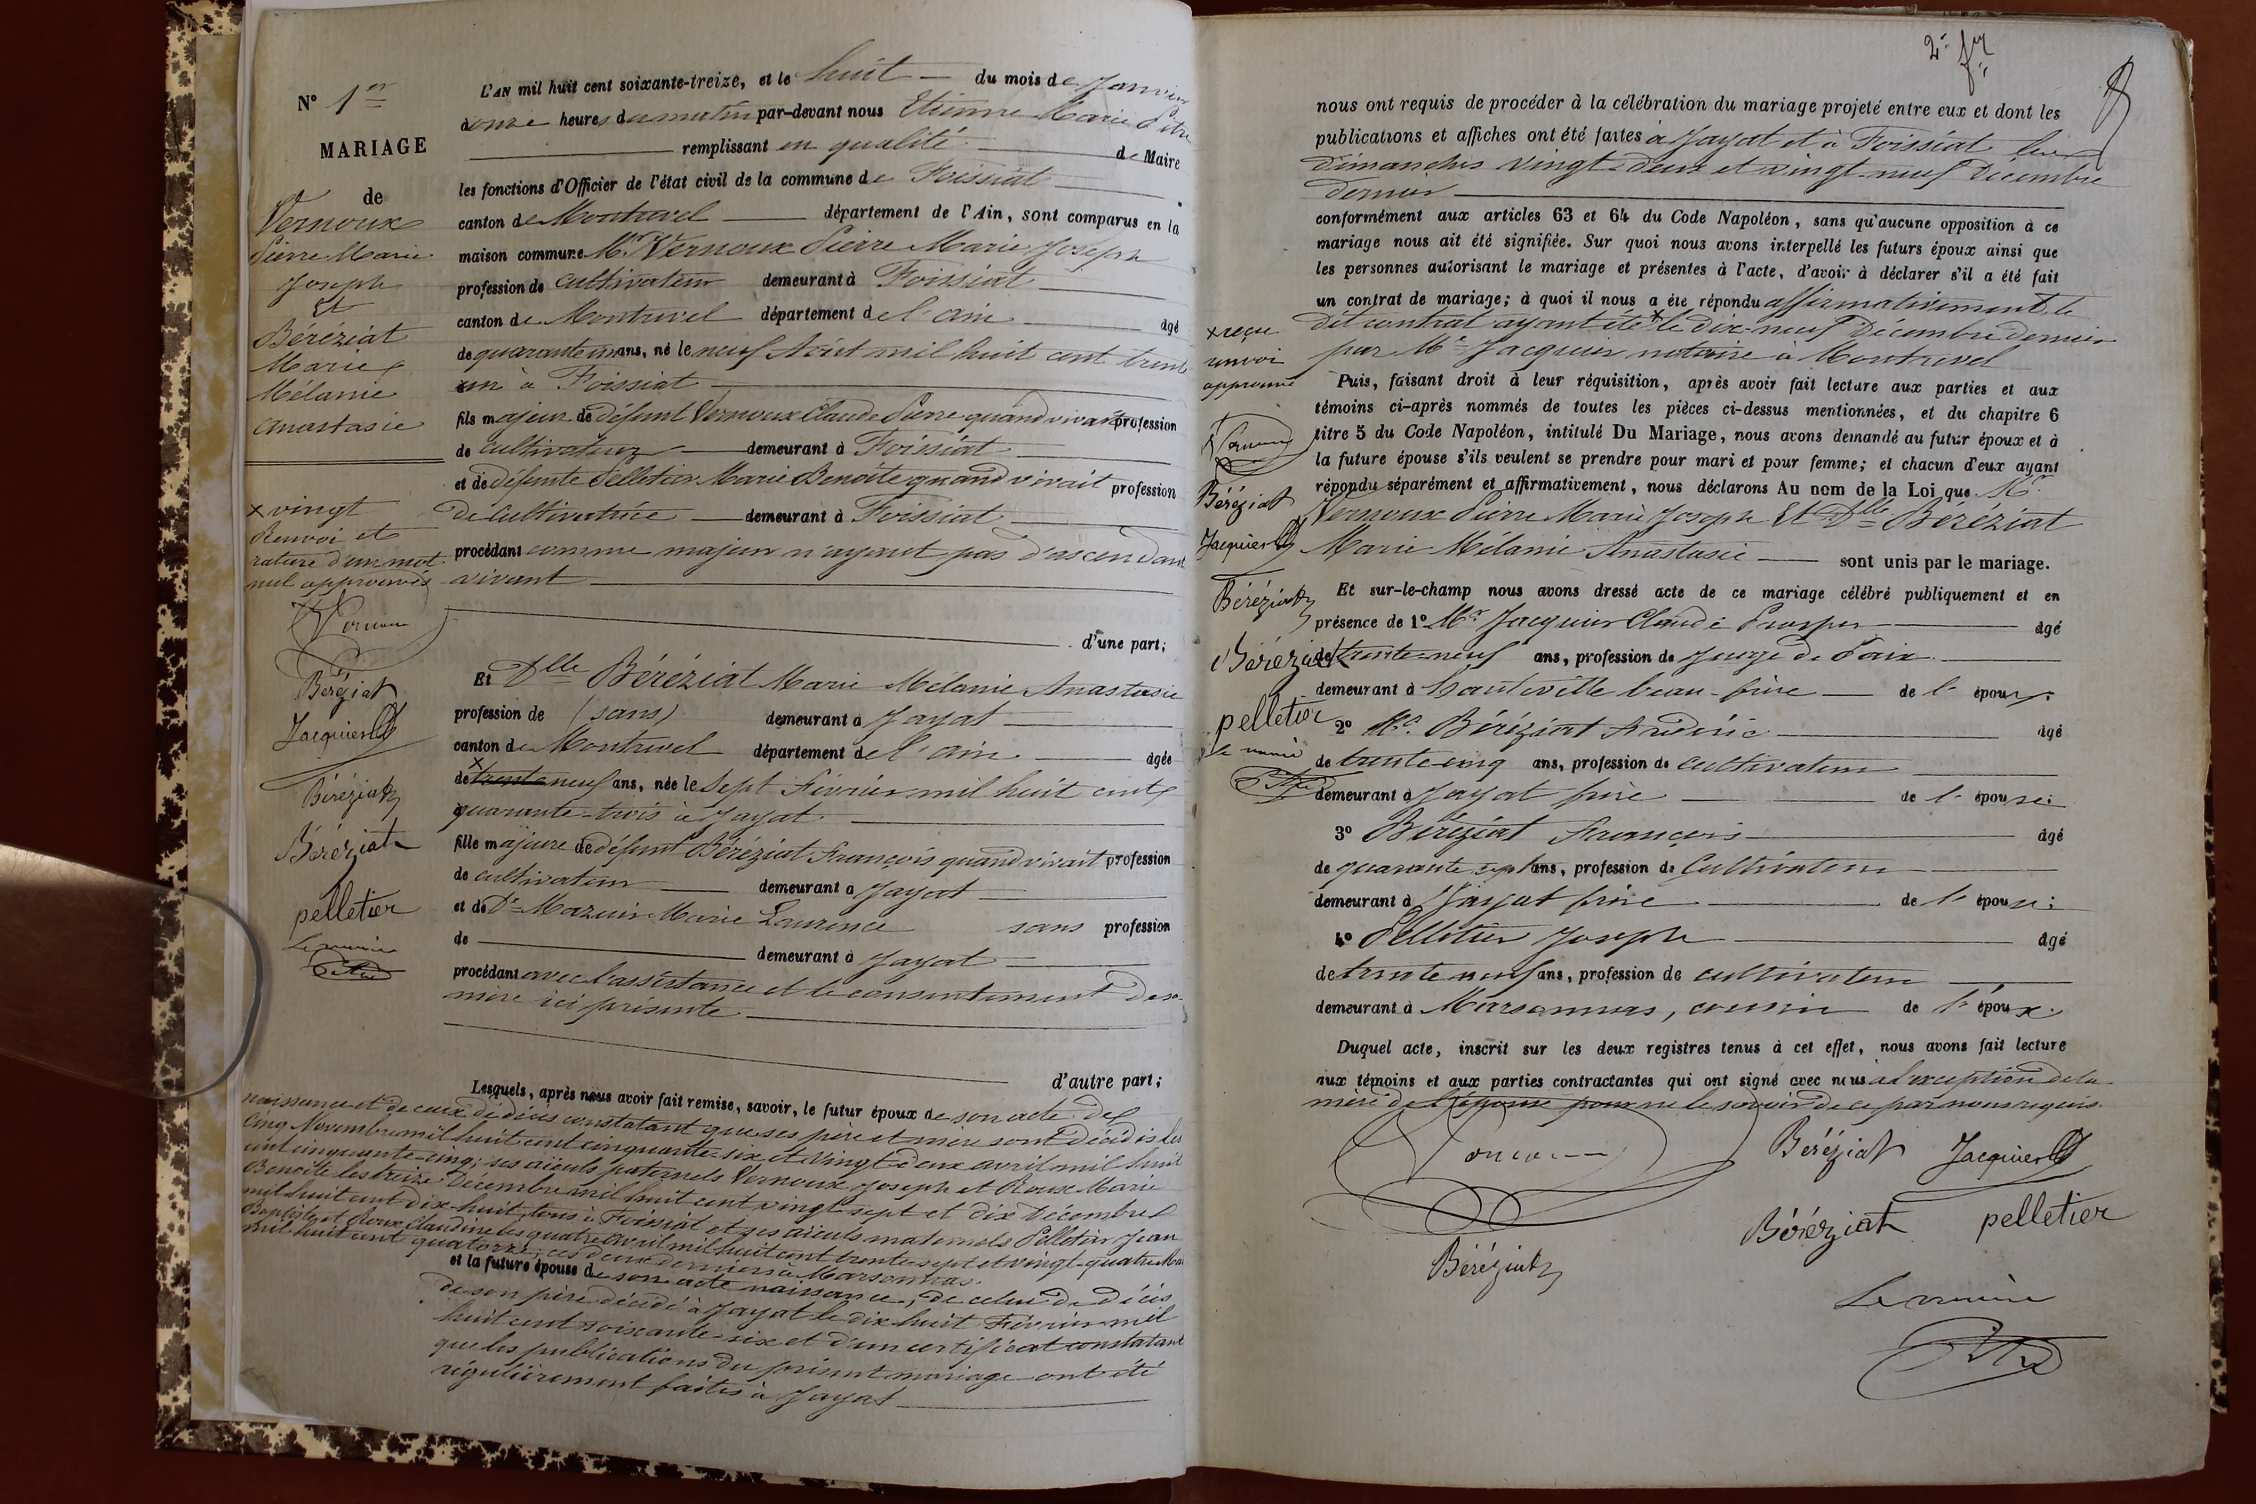 N° 1er
MARIAGE
de
Vernoux
Pierre Marie
Joseph
Et
Béréziat
Marie
Mélanie
Anastasie
x vingt
Renvoi et
rature d'un mot
nul approuvés
Vernoux
Béréziat
Jacquier
Béréziat
Béréziat
pelletier
Le maire
Pitre
L'AN mil huit cent soixante-treize, et le huit du mois de Janvier
onze heures du matin par-devant nous Etienne Marie Pitre
remplissant en qualité de Maire
les fonctions d'Officier de l'état civil de la commune de Foissiat
canton de Montrevel département de l'Ain, sont comparus en la
maison commune Mr Vernoux Pierre Marie Joseph
profession de cultivateur demeurant à Foissiat
canton de Montrevel département de l'ain âgé
de quarante un ans, né le neuf Août mil huit cent trente
un à Foissiat
fils majeur de défunt Vernoux Claude Pierre quand vivait profession
de cultivateur demeurant à Foissiat
et de défunte Pelletier Marie Benoite quand vivait profession
de cultivatrice demeurant à Foissiat
procédant comme majeur n'ayant pas d'ascendant
vivant
d'une part;
Et Dlle Béréziat Marie Mélanie Anastasie
profession de (sans) demeurant à Jayat
canton de Montrevel département de l'ain âgée
de x trente neuf ans, née le sept Février mil huit cent
quarante-trois à Jayat
fille majeure de défunt Béréziat François quand vivait profession
de cultivateur demeurant à Jayat
et de De Mazuir Marie Laurence sans profession
de demeurant à Jayat
procédant avec l'assistance et le consentement de sa
mère ici présente
d'autre part;
Lesquels, après nous avoir fait remise, savoir, le futur époux de son acte de
naissance et de ceux de décès constatant que ses père et mère sont décédés les
cinq Novembre mil huit cent cinquante-six et vingt deux avril mil huit
cent cinquante-cinq; ses aïeuls paternels Vernoux Joseph et Roux Marie
Benoite les treize Décembre mil huit cent vingt sept et dix Décembre
mil huit cent dix-huit, tous à Foissiat et ses aïeuls maternels Pelletier Jean
Baptiste et Roux Claudine les quatre avril mil huit cent trente sept et vingt-quatre Mai
mil huit cent quatorze, ces deux derniers à Marsonnas.
et la future épouse de son acte naissance, de celui de décès
de son père décédé à Jayat le dix-huit Février mil
huit cent soixante-six et d'un certificat constatant
que les publications du présent mariage ont été
régulièrement faites à Jayat
2e
nous ont requis de procéder à la célébration du mariage projeté entre eux et dont les
publications et affiches ont été faites à Jayat et à Foissiat les
dimanches vingt-deux et vingt-neuf Décembre
dernier
conformément aux articles 63 et 64 du Code Napoléon, sans qu'aucune opposition à ce
mariage nous ait été signifiée. Sur quoi nous avons interpellé les futurs époux ainsi que
les personnes autorisant le mariage et présentes à l'acte, d'avoir à déclarer s'il a été fait
un contrat de mariage; à quoi il nous a été répondu affirmativement, le
dit contrat ayant été x le dix-neuf Décembre dernier
par Me Jacquier notaire à Montrevel
x reçu
renvoi
approuvé
Vernoux
Béréziat
Jacquier
Béréziat
Béréziat
pelletier
le maire
Pitre
Puis, faisant droit à leur réquisition, après avoir fait lecture aux parties et aux
témoins ci-après nommés de toutes les pièces ci-dessus mentionnées, et du chapitre 6
titre 5 du Code Napoléon, intitulé Du Mariage, nous avons demandé au futur époux et à
la future épouse s'ils veulent se prendre pour mari et pour femme; et chacun d'eux ayant
répondu séparément et affirmativement, nous déclarons Au nom de la Loi que Mr
Vernoux Pierre Marie Joseph Et Dlle Béréziat
Marie Mélanie Anastasie sont unis par le mariage.
Et sur-le-champ nous avons dressé acte de ce mariage célébré publiquement et en
présence de 1° Mr Jacquier Claude Prosper âgé
de trente-neuf ans, profession de Juge de Paix
demeurant à Hauteville beau-frère de l'époux;
2° Mr Béréziat Frédéric âgé
de trente-cinq ans, profession de cultivateur
demeurant à Jayat frère de l'épouse;
3° Béréziat François âgé
de quarante sept ans, profession de Cultivateur
demeurant à Jayat frère de l'épouse;
4° Pelletier Joseph âgé
de trente neuf ans, profession de cultivateur
demeurant à Marsonnas, cousin de l'époux.
Duquel acte, inscrit sur les deux registres tenus à cet effet, nous avons fait lecture
aux témoins et aux parties contractantes qui ont signé avec nous à l'exception de la
mère de l'épouse pour ne le savoir de ce par nous requis.
Vernoux Béréziat Jacquier
Béréziat pelletier
Béréziat
Le maire
Pitre